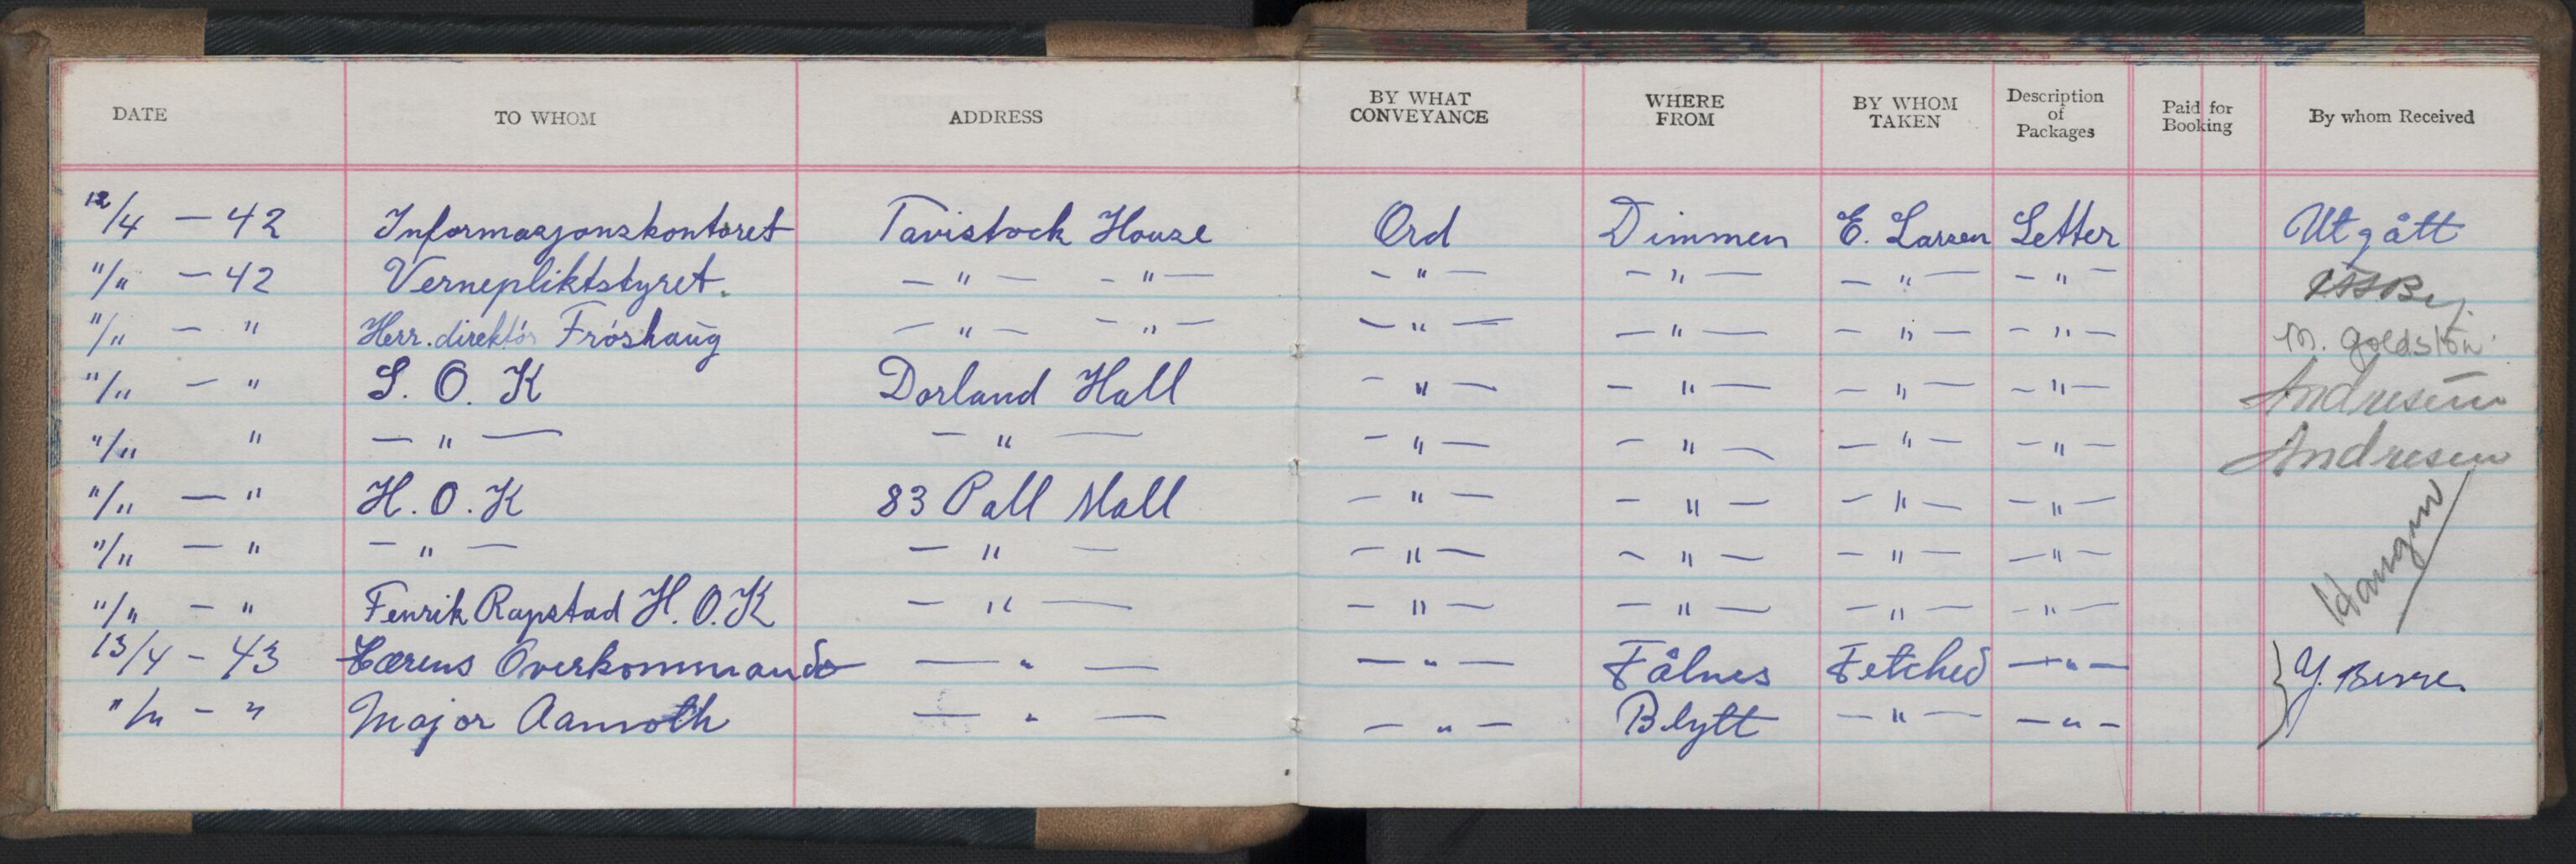 DATE TO WHOM ADDRESS BY WHAT CONVEYANCE WHERE FROM BY WHOM TAKEN Description of Packages Paid for Booking By whom Received
12/4 — 42 Informasjonskontoret Tavistock House Ord Dimmen E. Larsen Letter Utgått
"/" — 42 Vernepliktstyret. — " — — " — — " — — " — — " — — " —
"/" — " Herr. direktör Fröshaug — " — — " — — " — — " — — " — — " — M. Goldston
"/" — " S. O. K Dorland Hall — " — — " — — " — — " — Andresen
"/" " — " — — " — — " — — " — — " — — " — Andresen
"/" — " H. O. K 83 Pall Mall — " — — " — — " — — " —
"/" — " — " — — " — — " — — " — — " — — " —
"/" — " Fenrik Rapstad H. O. K — " — — " — — " — — " — — " —
13/4 — 43 Hærens Overkommando — " — — " — Fålnes Fetched — " —
"/" — " Major Aamoth — " — — " — Blytt — " — — " —